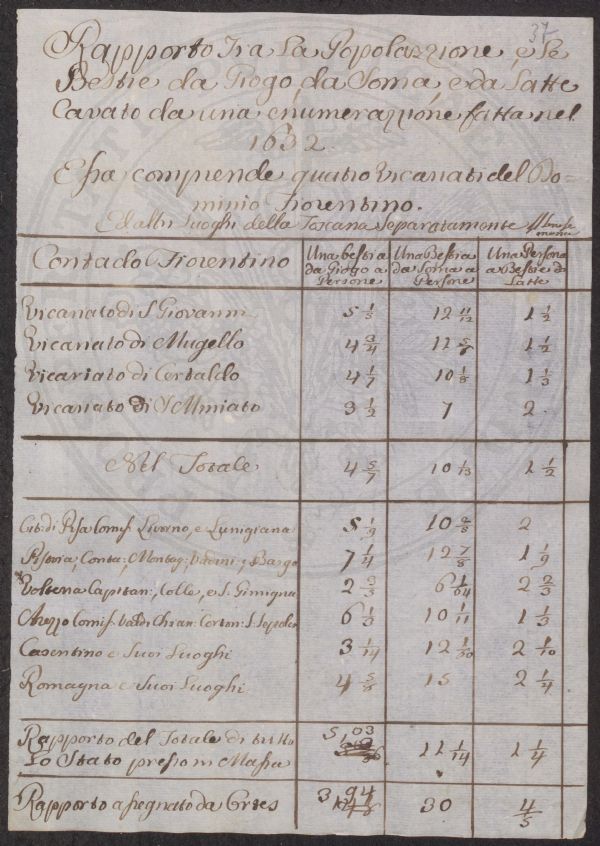 37
Rapporto Tra La Popolazzione, e Le
Bestie da Giogo, da Soma, e da Latte
Cavato da una enumerazzione fatta nel
1632.
Essa comprende quatro Vicariati del Do=
minio Fiorentino.
Ed altri Luoghi della Toscana Separatamente
Contado Fiorentino | Una bestia da Giogo a Persone | Una Bestia da Soma a Persone | Una Persona a Bestie da Latte
Vicariato di S Giovanni | 5 1/5 | 12 11/12 | 1 1/2
Vicariato di Mugello | 4 3/4 | 11 5/6 | 1 1/2
Vicariato di Certaldo | 4 1/7 | 10 1/8 | 1 1/3
Vicariato di S Miniato | 3 1/2 | 7 | 2
Nel Totale | 4 5/7 | 10 1/13 | 1 1/2
Citt: di Pisa Comis: Livorno, e Lunigiana | 5 1/9 | 10 2/8 | 2
Pistoia, Conta:, Montag: e Barga | 7 1/4 | 12 7/8 | 1 1/9
Volterra Capitan:, Colle, e S: Gimigna | 2 2/3 | 6 1/64 | 2 2/3
Arezzo Comis: Valdi Chian: Corton: S: Sepolcr | 6 1/3 | 10 1/11 | 1 1/3
Casentino e Suoi Luoghi | 3 1/14 | 12 1/30 | 2 1/10
Romagna e Suoi Luoghi | 4 5/8 | 15 | 2 1/4
Rapporto del Totale di tutto Lo Stato preso in Massa | 5 | 11 1/14 | 1 1/4
Rapporto assegnato da | 3 | 30 | 4/5